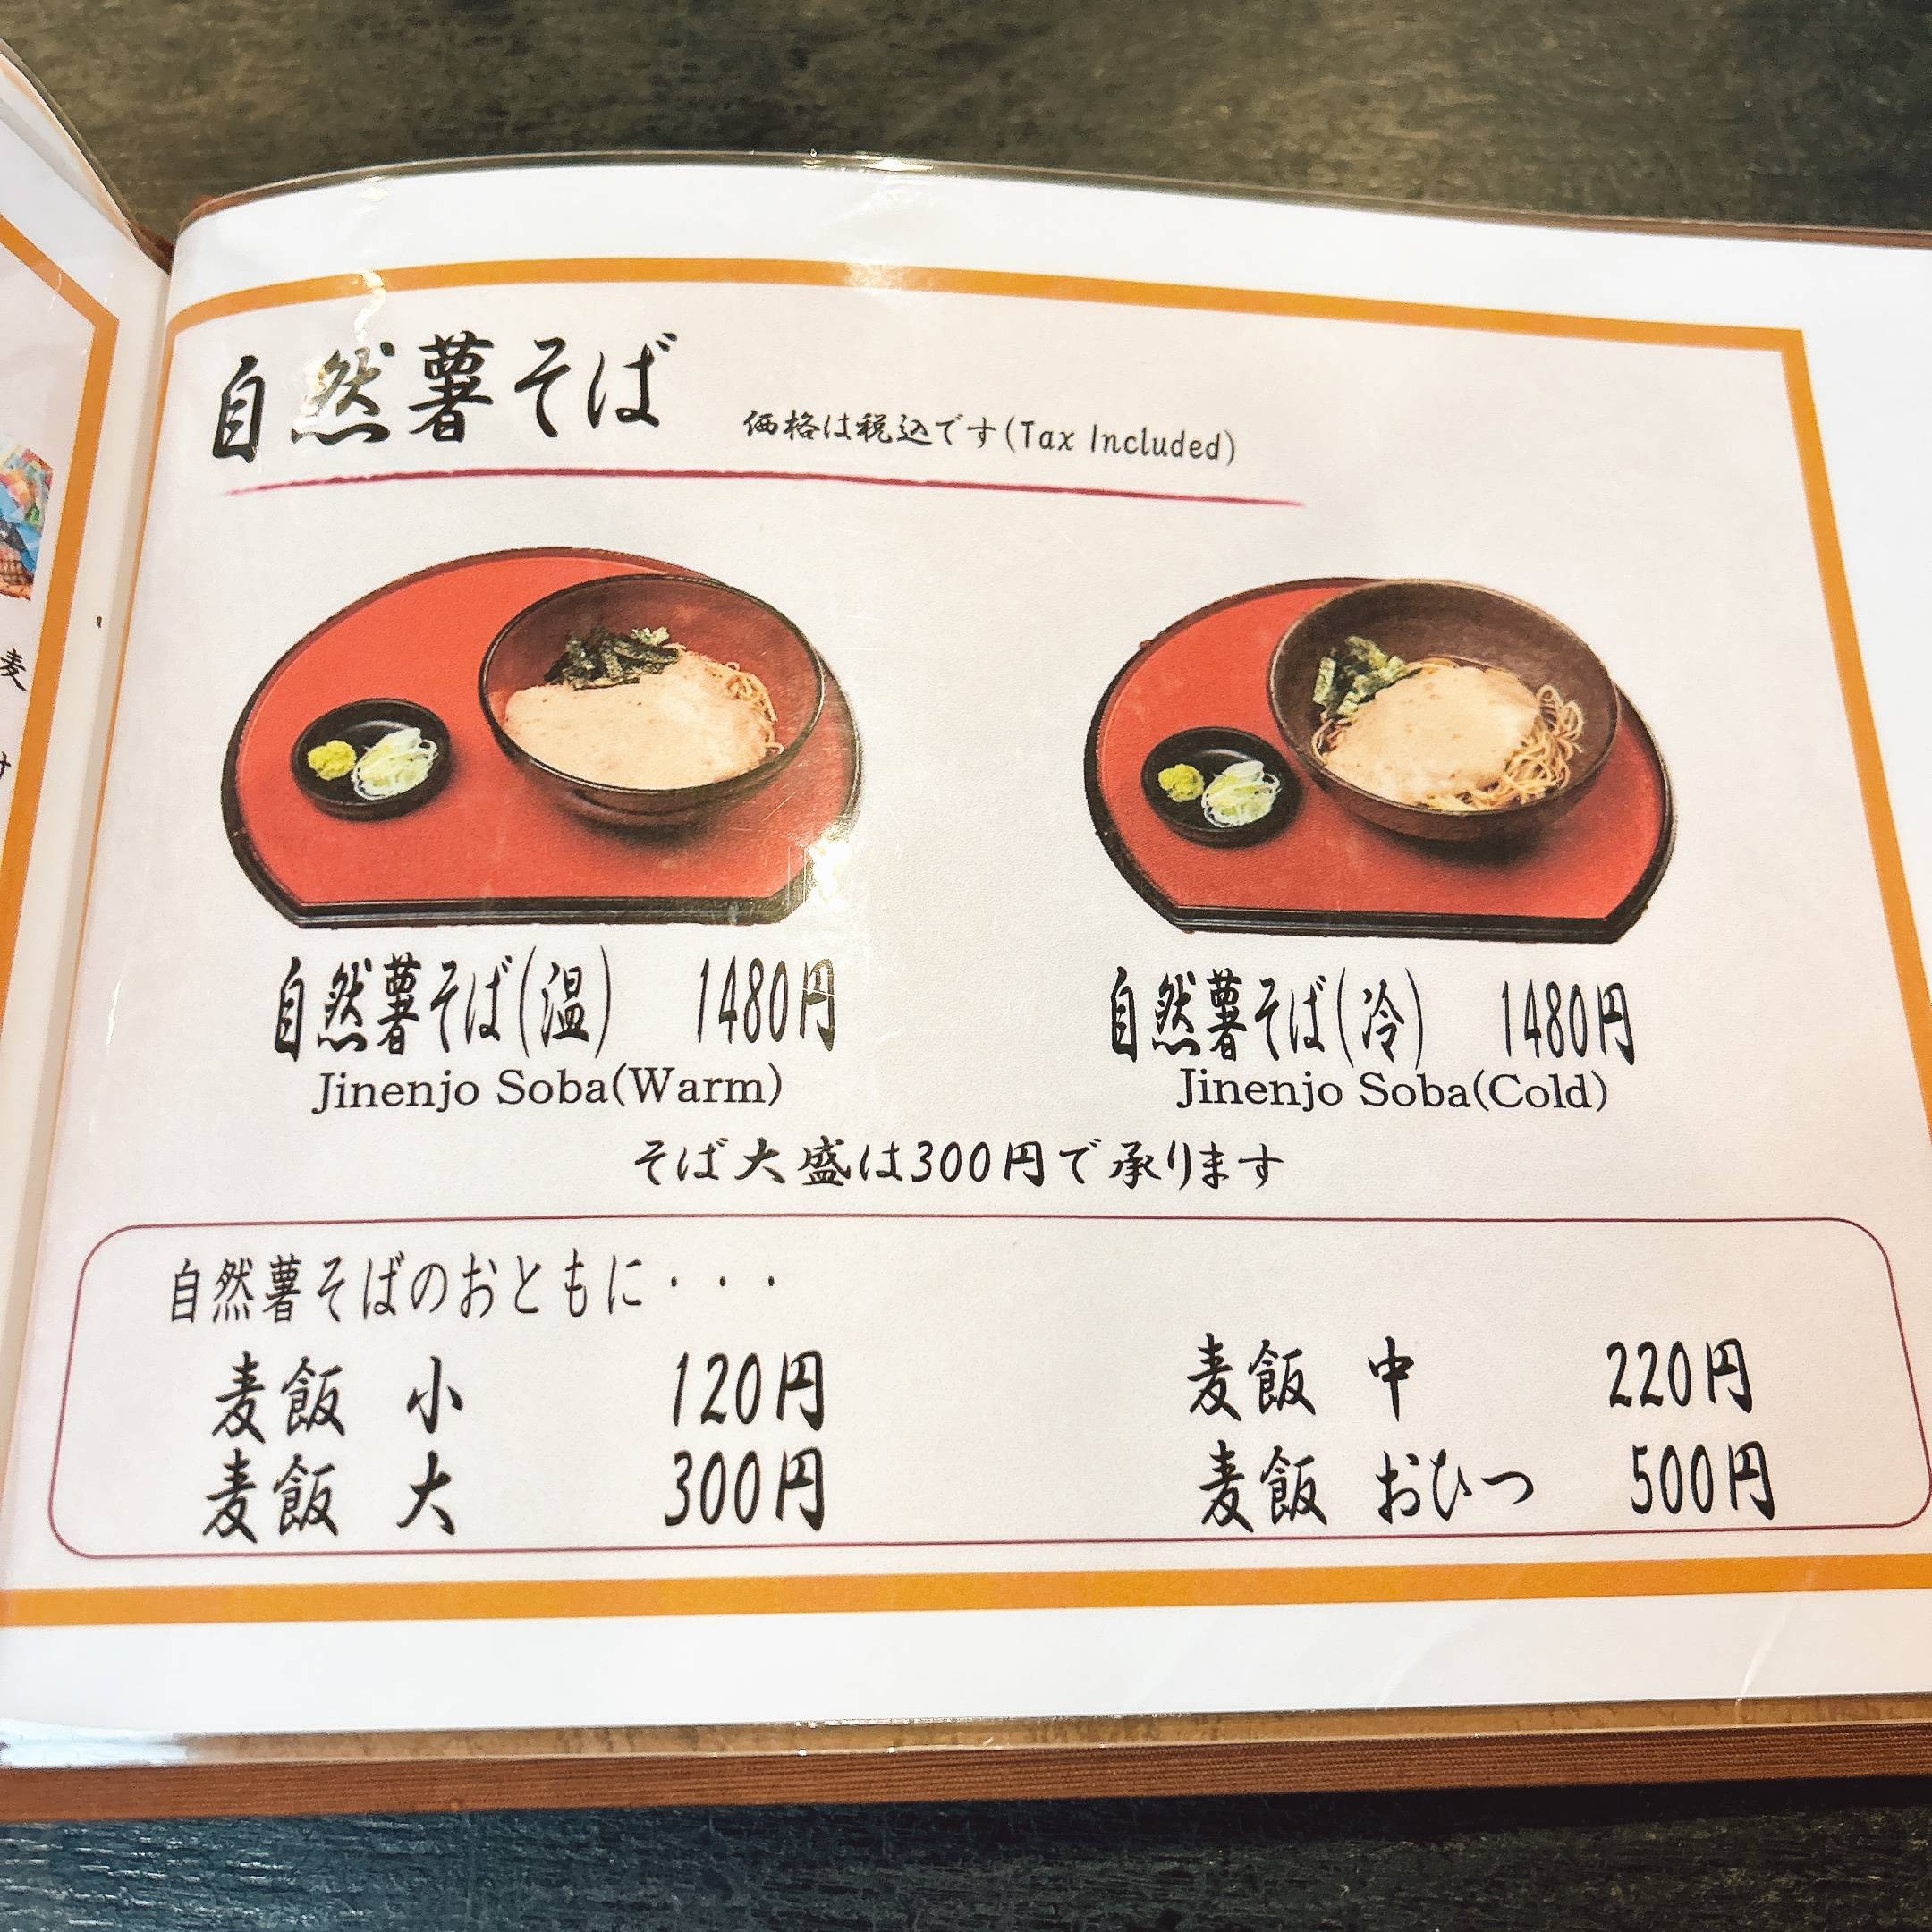 自然薯そば 価格は税込です(Tax Included)
自然薯そば(温) 1480円
Jinenjo Soba(Warm)
自然薯そば(冷) 1480円
Jinenjo Soba(Cold)
そば大盛は300円で承ります
自然薯そばのおともに・・・
麦飯 小 120円
麦飯 中 220円
麦飯 大 300円
麦飯 おひつ 500円
麦
け